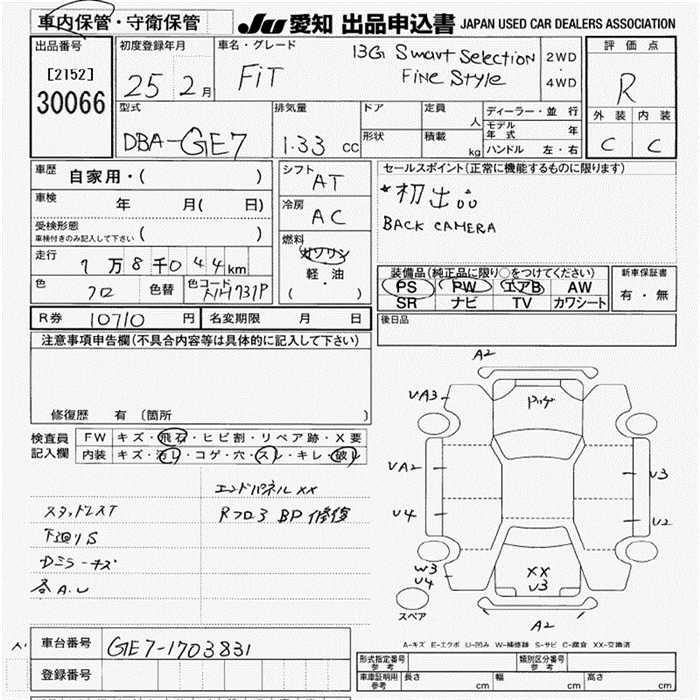 車内保管・守衛保管
JU 愛知 出品申込書 JAPAN USED CAR DEALERS ASSOCIATION
出品番号
[2152]
30066
初度登録年月
25 2 月
車名・グレード
FiT
13G Smart Selection
Fine Style
2WD
・
4WD
評価点
R
外装 内装
C C
型式
DBA-GE7
排気量
1.33 cc
ドア
形状
定員 人
積載 kg
ディーラー・並行
モデル年式 年
ハンドル 左・右
車歴 自家用・( )
車検 年 月( 日)
受検形態
車検付きのみ記入して下さい ( )
走行 7 万 8 千 0 4 4 km
色 クロ 色替 色コード
シフト AT
冷房 AC
燃料 ガソリン
軽・油
( ・ )
セールスポイント(正常に機能するものに限ります)
*初出品
BACK CAMERA
装備品(純正品に限り○をつけてください)
PS PW エアB AW
SR ナビ TV カワシート
新車保証書
有・無
後日品
R券 10710 円 名変期限 月 日
注意事項申告欄(不具合内容等は具体的に記入して下さい)
修復歴 有 〔箇所 〕
検査員記入欄
FW キズ・飛石・ヒビ割・リペア跡・X要
内装 キズ・汚レ・コゲ・穴・スレ・キレ・破レ
エンドパネル XX
スタッドレスT
Rフロア BP 修復
下回リS
Dミラーキズ
各A.U
A2
VA3
VA2
U4
W3
U4
U3
U2
XX
U3
スペア
A2
A-キズ E-エクボ U-凹み W-補修跡 S-サビ C-腐食 XX-交換済
車台番号 GE7-1703831
登録番号
形式指定番号 参考
類別区分番号 参考
車庫証明用 参考 長さ cm 幅 cm 高さ cm